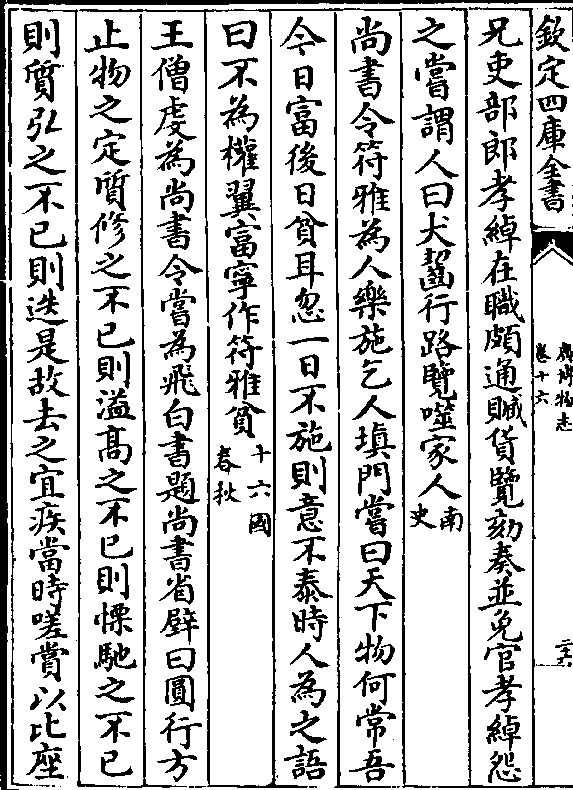 欽定四庫全書
廣博物志
卷十六
三六
兄吏部郎孝綽在職頗通贓貨覽劾奏並免官孝綽怨
之嘗謂人曰犬齧行路覽噬家人南史
尚書令符雅為人樂施乞人填門嘗曰天下物何常吾
今日富後日貧耳忽一日不施則意不泰時人為之語
曰不為權翼富寧作符雅貧十六國春秋
王僧虔為尚書令嘗為飛白書題尚書省壁曰圓行方
止物之定質修之不已則溢高之不已則慄馳之不已
則質弘之不已則迭是故去之宜疾當時嗟賞以比座